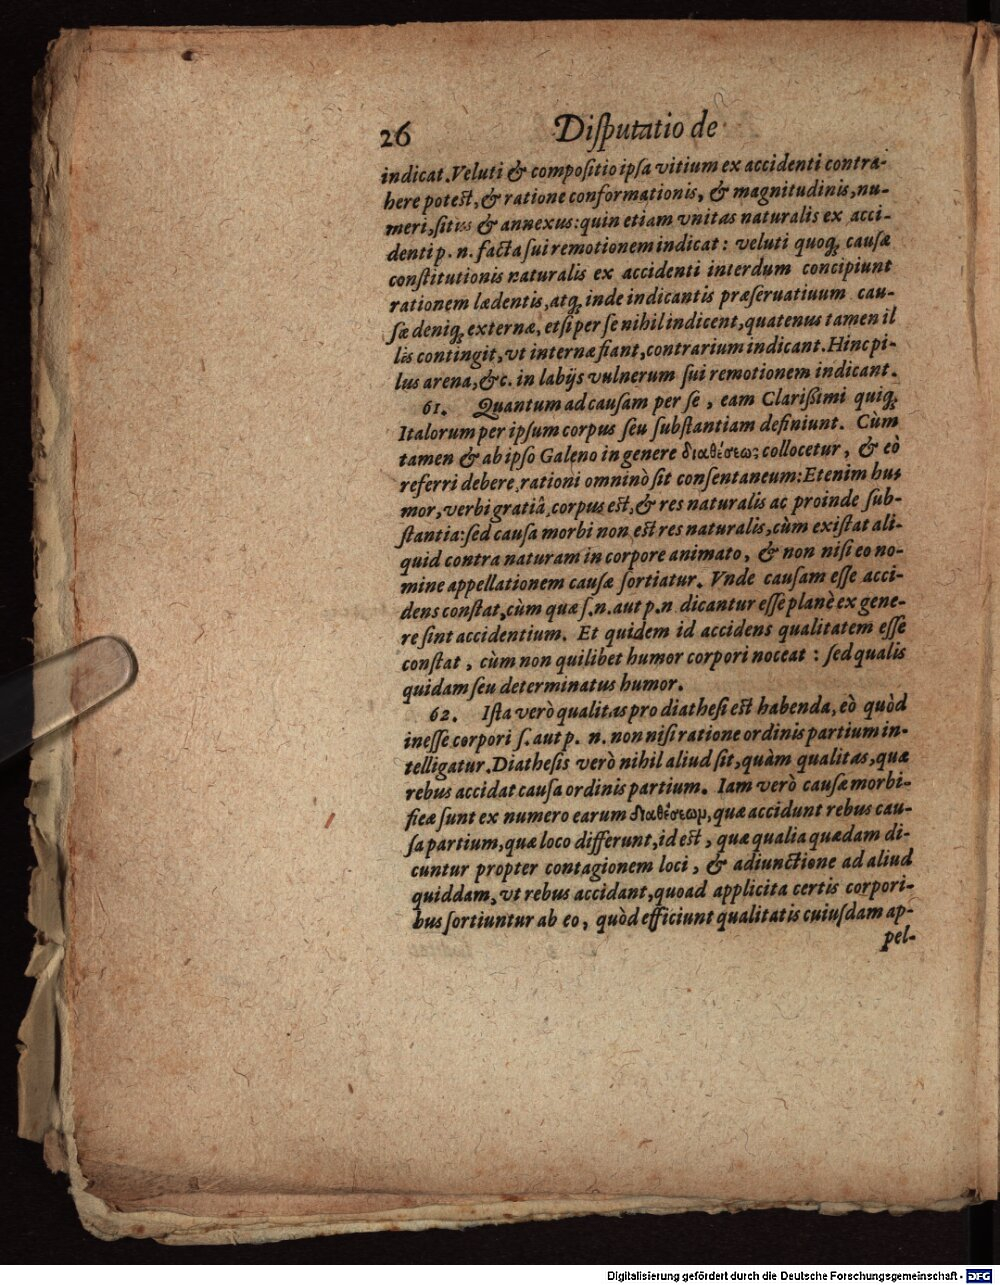 26 Diſputatio de
indicat. Veluti & compoſitio ipſa vitium ex accidenti contra-
here poteſt, & ratione conformationis, & magnitudinis, nu-
meri, ſitus & annexus: quin etiam vnitas naturalis ex acci-
denti p. n. facta ſui remotionem indicat: veluti quoq; cauſæ
conſtitutionis naturalis ex accidenti interdum concipiunt
rationem lædentis, atq; inde indicantis præſeruatiuum cau-
ſæ deniq; externæ, etſi per ſe nihil indicent, quatenus tamen il
lis contingit, vt internæ fiant, contrarium indicant. Hinc pi-
lus arena, &c. in labijs vulnerum ſui remotionem indicant.
61. Quantum ad cauſam per ſe, eam Clarißimi quiq;
Italorum per ipſum corpus ſeu ſubſtantiam definiunt. Cùm
tamen & ab ipſo Galeno in genere διαθέσεως collocetur, & eò
referri debere, rationi omninò ſit conſentaneum: Etenim hu-
mor, verbi gratiâ, corpus eſt, & res naturalis ac proinde ſub-
ſtantia: ſed cauſa morbi non eſt res naturalis, cùm exiſtat ali-
quid contra naturam in corpore animato, & non niſi eo no-
mine appellationem cauſæ ſortiatur. Vnde cauſam eſſe acci-
dens conſtat, cùm quæ ſ. n. aut p. n dicantur eſſe planè ex gene-
re ſint accidentium. Et quidem id accidens qualitatem eſſe
conſtat, cùm non quilibet humor corpori noceat: ſed qualis
quidam ſeu determinatus humor.
62. Iſta verò qualitas pro diatheſi eſt habenda, eò quòd
ineſſe corpori ſ. aut p. n. non niſi ratione ordinis partium in-
telligatur. Diatheſis verò nihil aliud ſit, quàm qualitas, quæ
rebus accidat cauſa ordinis partium. Iam verò cauſæ morbi-
ficæ ſunt ex numero earum διαθέσεωμ, quæ accidunt rebus cau-
ſa partium, quæ loco differunt, id eſt, quæ qualia quædam di-
cuntur propter contagionem loci, & adiunctione ad aliud
quiddam, vt rebus accidant, quoad applicita certis corpori-
bus ſortiuntur ab eo, quòd efficiunt qualitatis cuiuſdam ap-
pel-
Digitalisierung gefördert durch die Deutsche Forschungsgemeinschaft - DFG